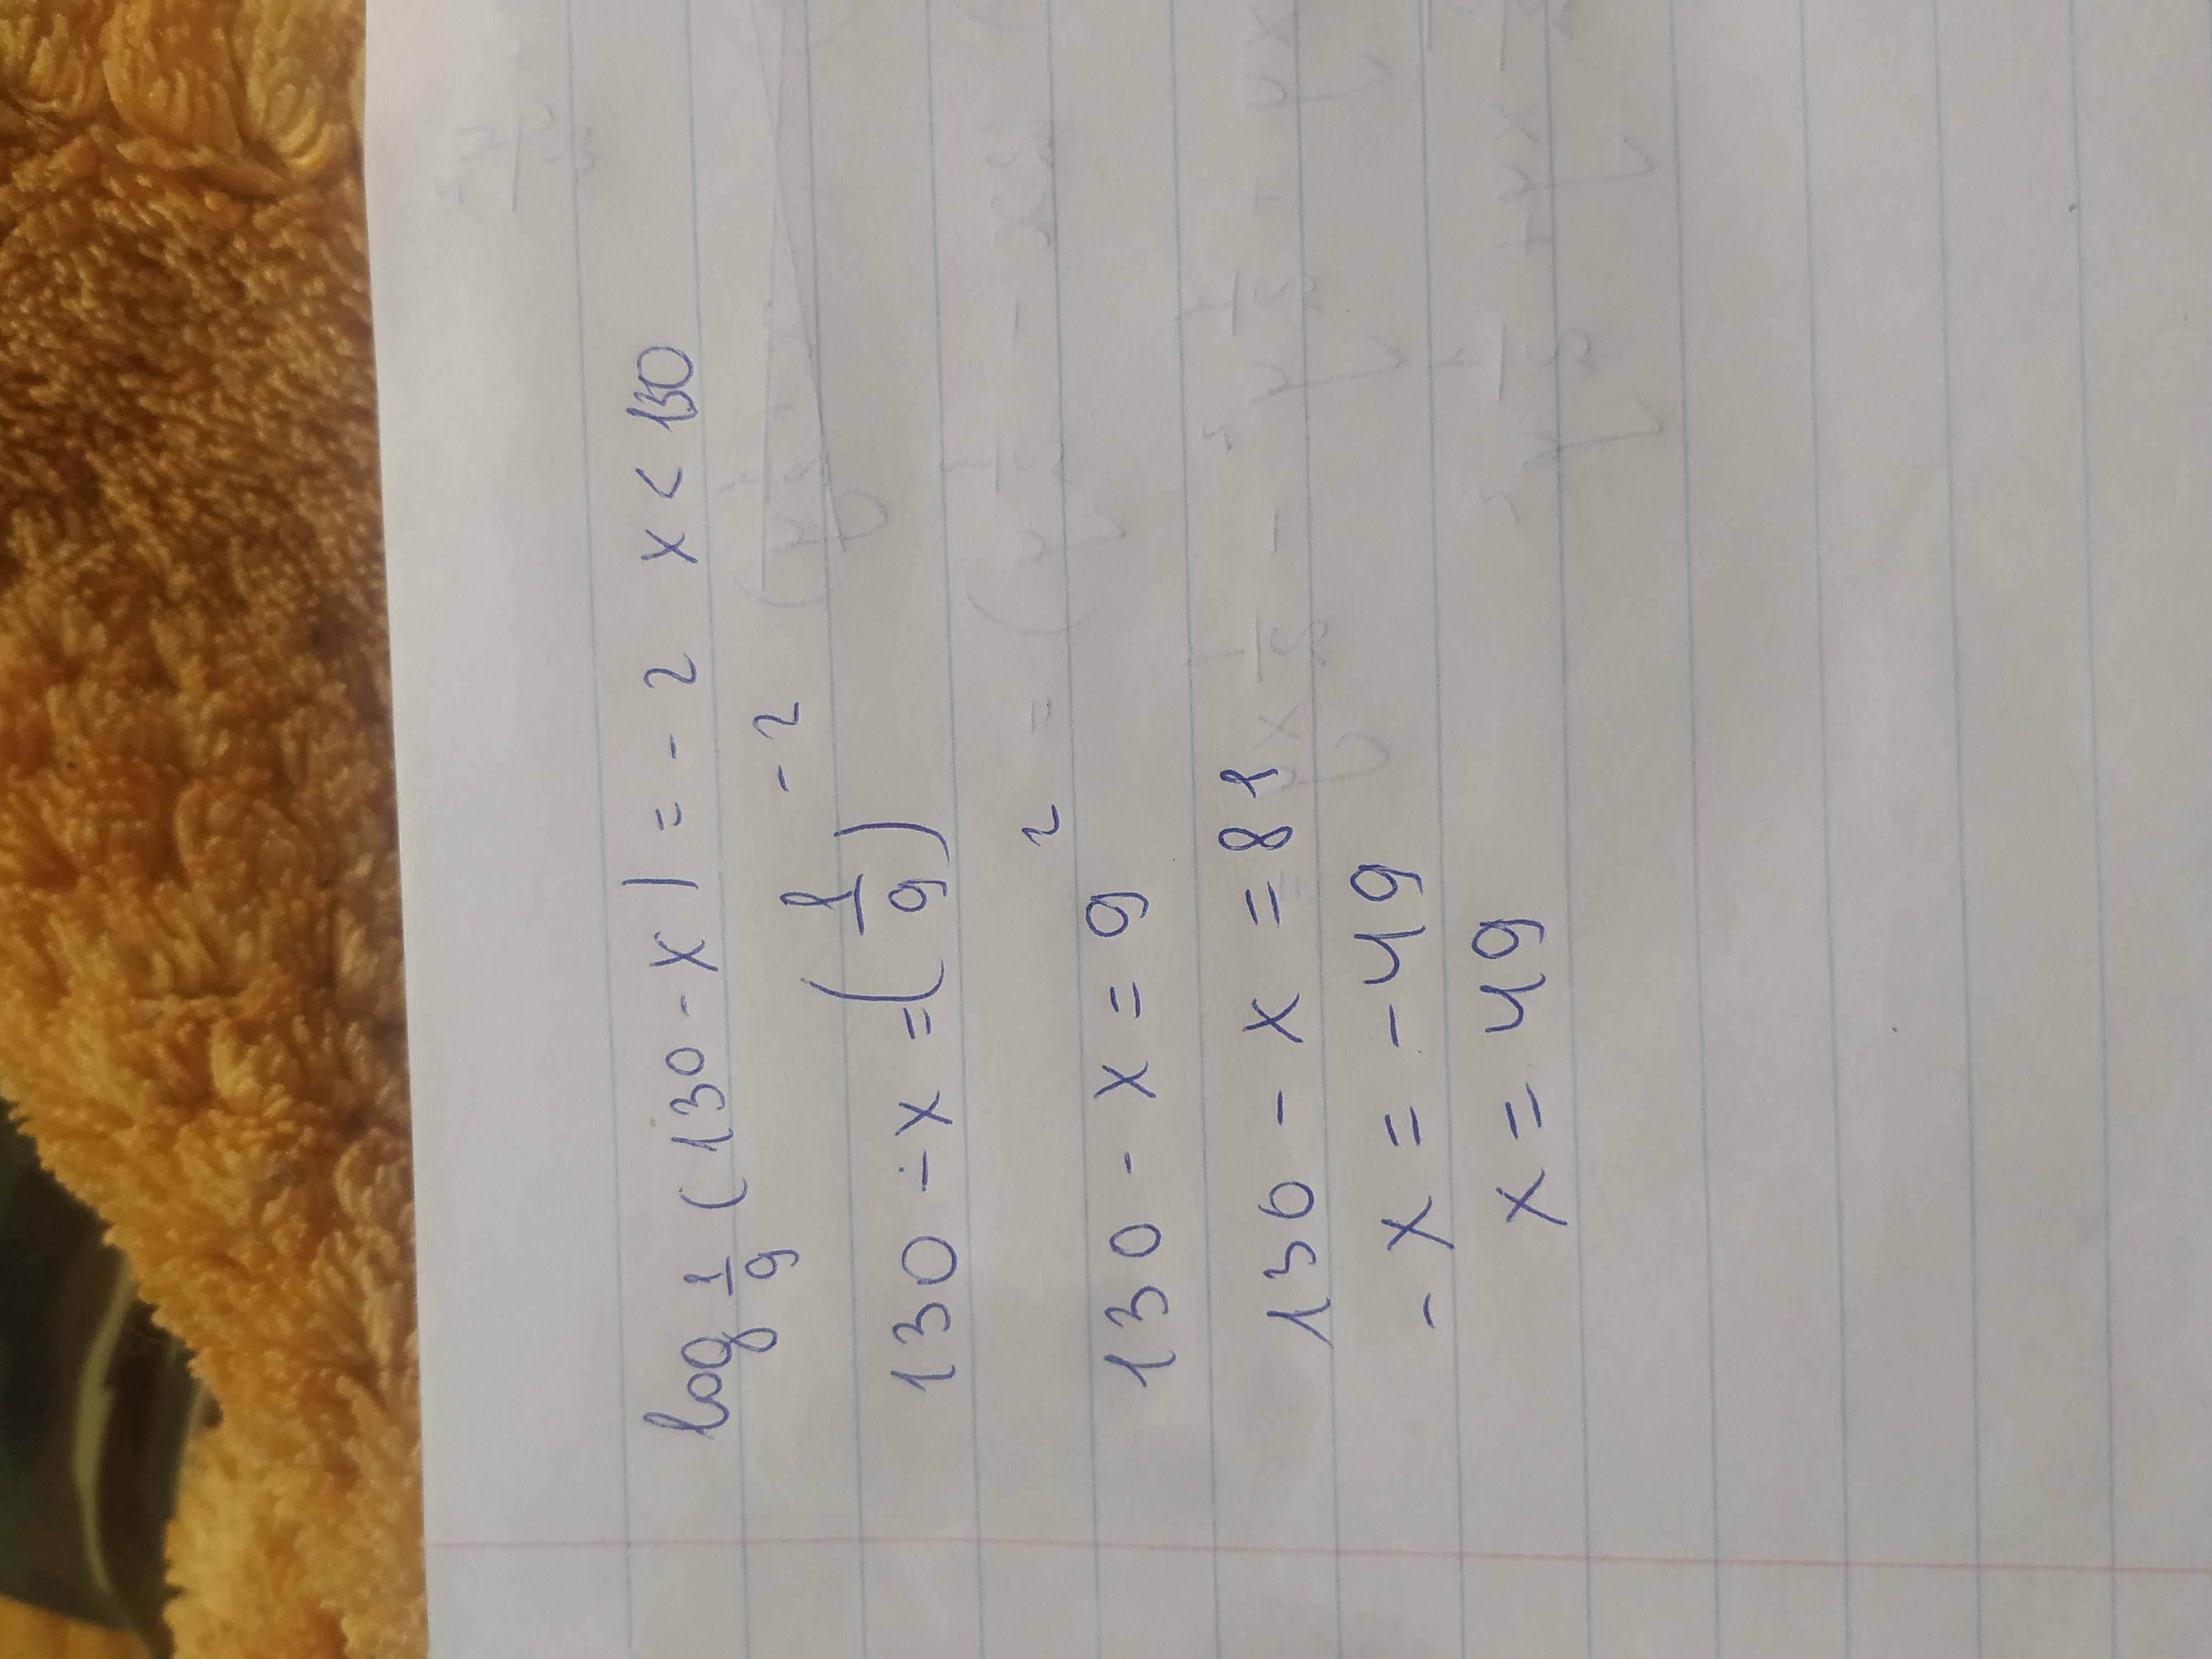 log 1/9 (130 - x) = - 2 x < 130
130 - x = (1/9)^-2
130 - x = 9^2
130 - x = 81
- x = - 49
x = 49